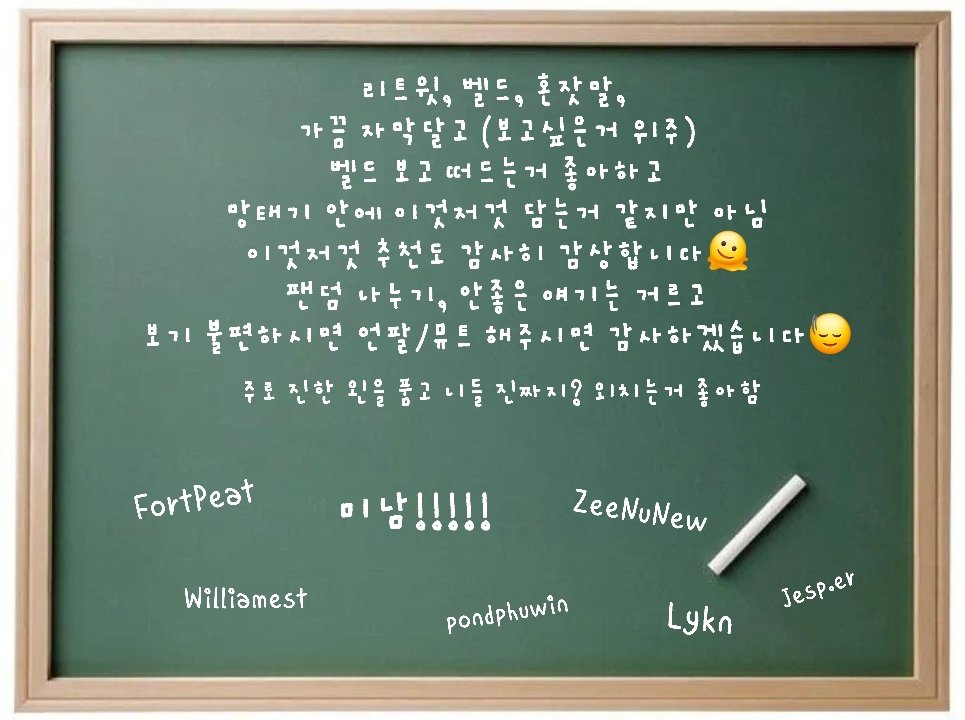 리트윗, 벨드, 혼잣말,
가끔 자막달고 (보고싶은거 위주)
벨드 보고 떠드는거 좋아하고
망태기 안에 이것저것 담는거 같지만 아님
이것저것 추천도 감사히 감상합니다🫠
팬덤 나누기, 안좋은 얘기는 거르고
보기 불편하시면 언팔/뮤트 해주시면 감사하겠습니다😓
주로 진한 왼을 품고 니들 진짜지? 외치는거 좋아함
FortPeat
미남!!!!!
ZeeNuNew
Williamest
pondphuwin
Lykn
Jesp.er